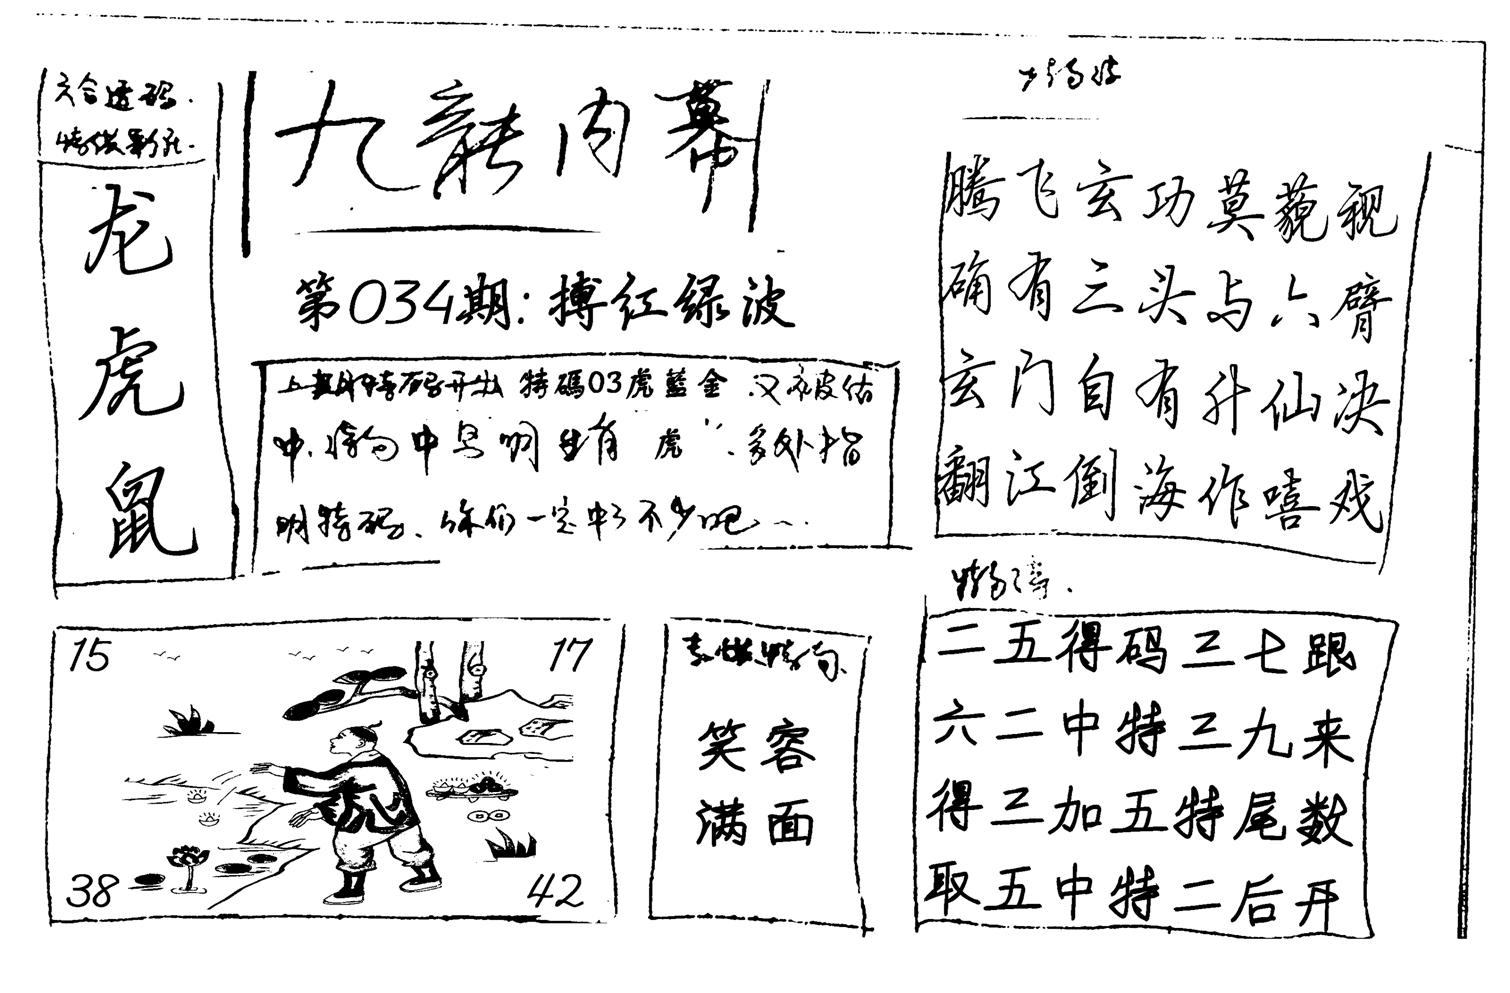 六合透码.
龙
虎
鼠
九龍内幕
第034期:搏红绿波
上期特码开出 特碼03虎藍金.又被估
中.特 中 明生肖“虎”.多处指
明特码、你们一定中了不少吧
腾飞玄功莫藐视
确有三头与六臂
玄门自有升仙决
翻江倒海作嘻戏
15
17
38
42
特句
笑容
满面
二五得码三七跟
六二中特三九来
得三加五特尾数
取五中特二后开